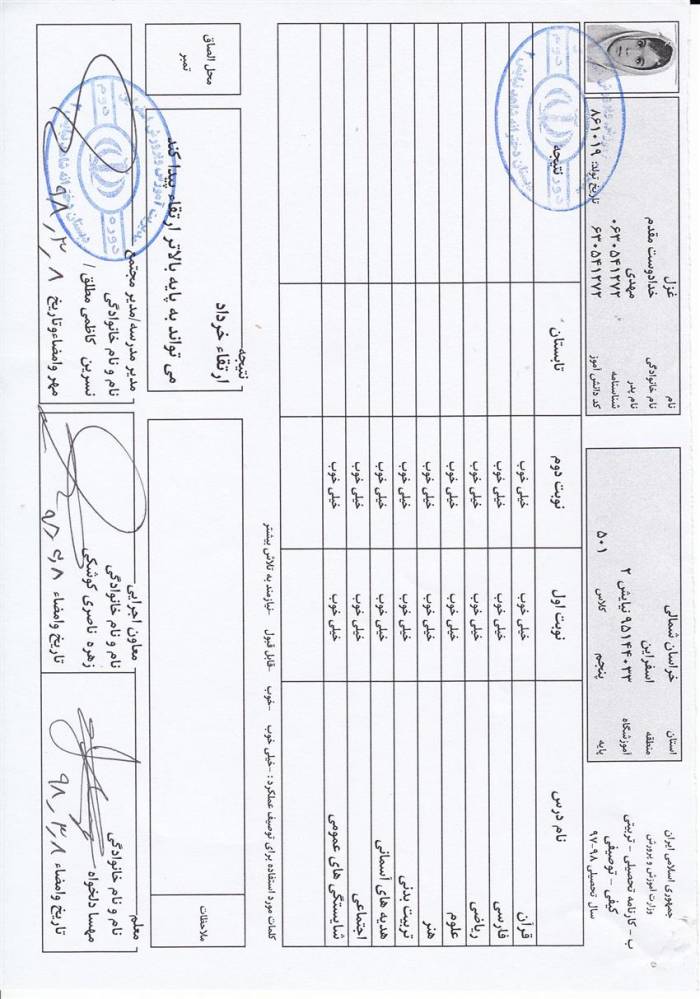 جمهوری اسلامی ایران
وزارت آموزش و پرورش
ب - کارنامه تحصیلی - تربیتی
کیفی - توصیفی
سال تحصیلی ۹۸-۹۷
استان خراسان شمالی
منطقه اسفراین
آموزشگاه ۹۵۱۴۴۰۳۳ نیایش ۲
پایه پنجم کلاس ۵۰۱
نام غزل
نام خانوادگی خدادوست مقدم
نام پدر مهدی
شناسنامه ۰۶۳۰۵۴۱۲۷۲
کد دانش آموز ۶۳۰۵۴۱۲۷۲
تاریخ تولد: ۸۶۱۰۱۹
نام درس نوبت اول نوبت دوم تابستان نتیجه
قرآن خیلی خوب خیلی خوب
فارسی خیلی خوب خیلی خوب
ریاضی خیلی خوب خیلی خوب
علوم خیلی خوب خیلی خوب
هنر خیلی خوب خیلی خوب
تربیت بدنی خیلی خوب خیلی خوب
هدیه های آسمانی خیلی خوب خیلی خوب
اجتماعی خیلی خوب خیلی خوب
شایستگی های عمومی خیلی خوب خیلی خوب
کلمات مورد استفاده برای توصیف عملکرد : -خیلی خوب -خوب -قابل قبول -نیازمند به تلاش بیشتر
ملاحظات
نتیجه
ارتقاء خرداد
می تواند به پایه بالاتر ارتقاء پیدا کند
محل الصاق
تمبر
معلم
نام و نام خانوادگی
مهسا دلخواه
تاریخ وامضاء ۹۸,۳,۸
معاون اجرایی
نام و نام خانوادگی
زهره ناصری کوشکی
تاریخ وامضاء
مدیر مدرسه/مدیر مجتمع
نام و نام خانوادگی
نسرین کاظمی مطلق /
مهر وامضاءوتاریخ ۹۸,۳,۸
دوره
دوم